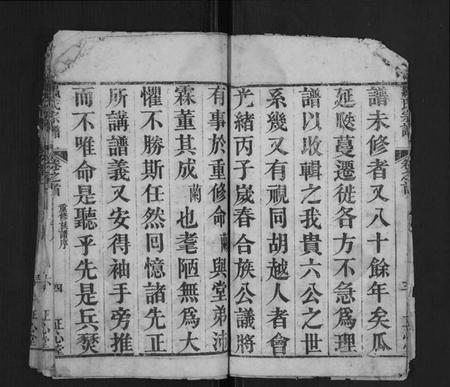 譜未修者又八十餘年矣瓜
延瓞蔓遷徙各方不急為理
譜以收輯之我貴六公之世
系幾又有視同胡越人者會
光緒丙子歲春合族公議將
有事於重修命蘭與堂弟沛
霖董其成蘭也耄陋無為大
懼不勝斯任然囘憶諸先正
所講譜義又安得袖手旁推
而不唯命是聽乎先是兵燹
重修族譜序
四
正心堂